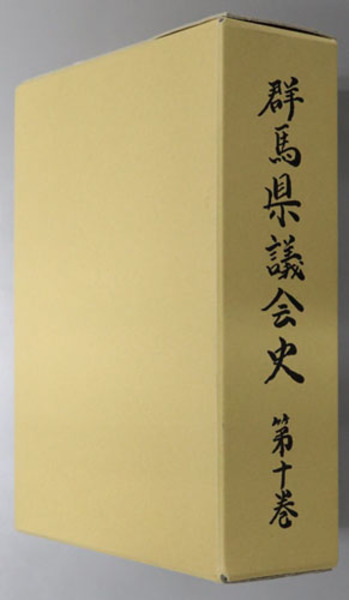 群馬県議会史 第十巻